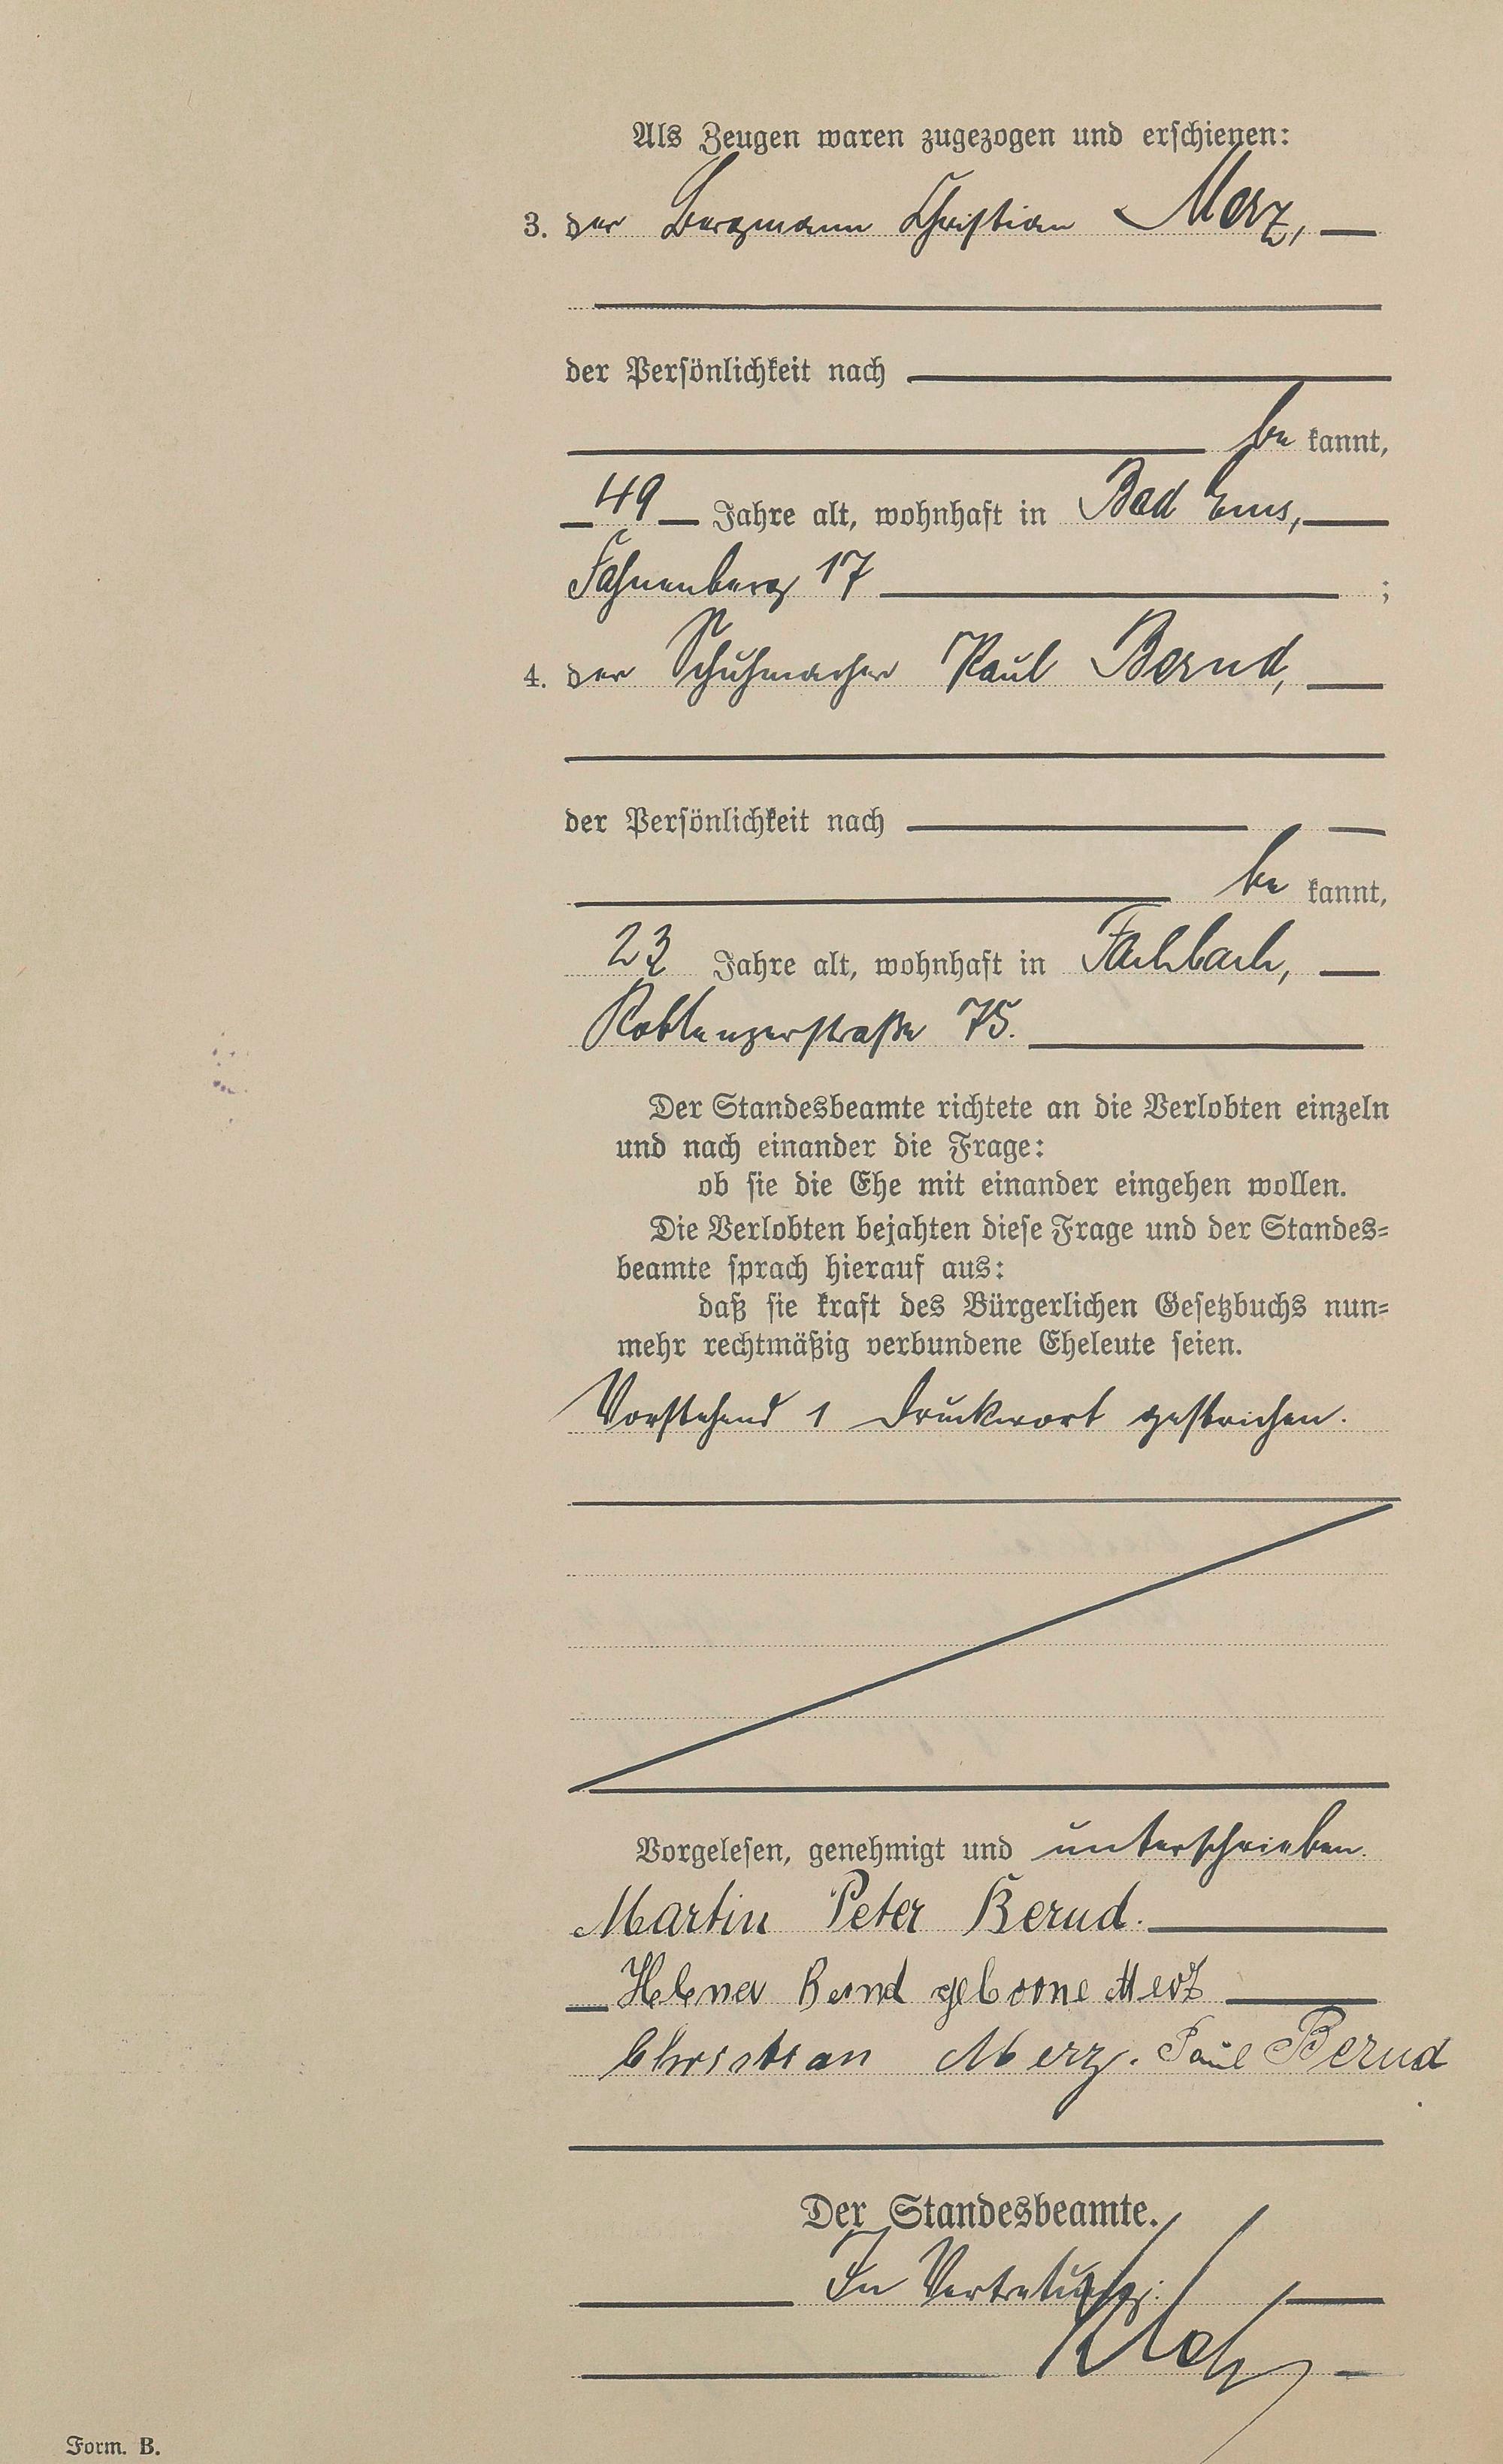 Als Zeugen waren zugezogen und erschienen:
3. der Bergmann Christian Merz,
der Persönlichkeit nach
be kannt,
49 Jahre alt, wohnhaft in Bad Ems,
Fahnenberg 17 ;
4. der Schuhmacher Paul Bernd,
der Persönlichkeit nach
be kannt,
23 Jahre alt, wohnhaft in Fachbach,
Koblenzerstraße 75.
Der Standesbeamte richtete an die Verlobten einzeln
und nach einander die Frage:
ob sie die Ehe mit einander eingehen wollen.
Die Verlobten bejahten diese Frage und der Standes=
beamte sprach hierauf aus:
daß sie kraft des Bürgerlichen Gesetzbuchs nun=
mehr rechtmäßig verbundene Eheleute seien.
Vorstehend 1 Druckwort gestrichen.
Vorgelesen, genehmigt und unterschrieben.
Martin Peter Bernd.
Helena Bernd geborne Merz
Christian Merz. Paul Bernd
Der Standesbeamte.
In Vertretung:
Form. B.